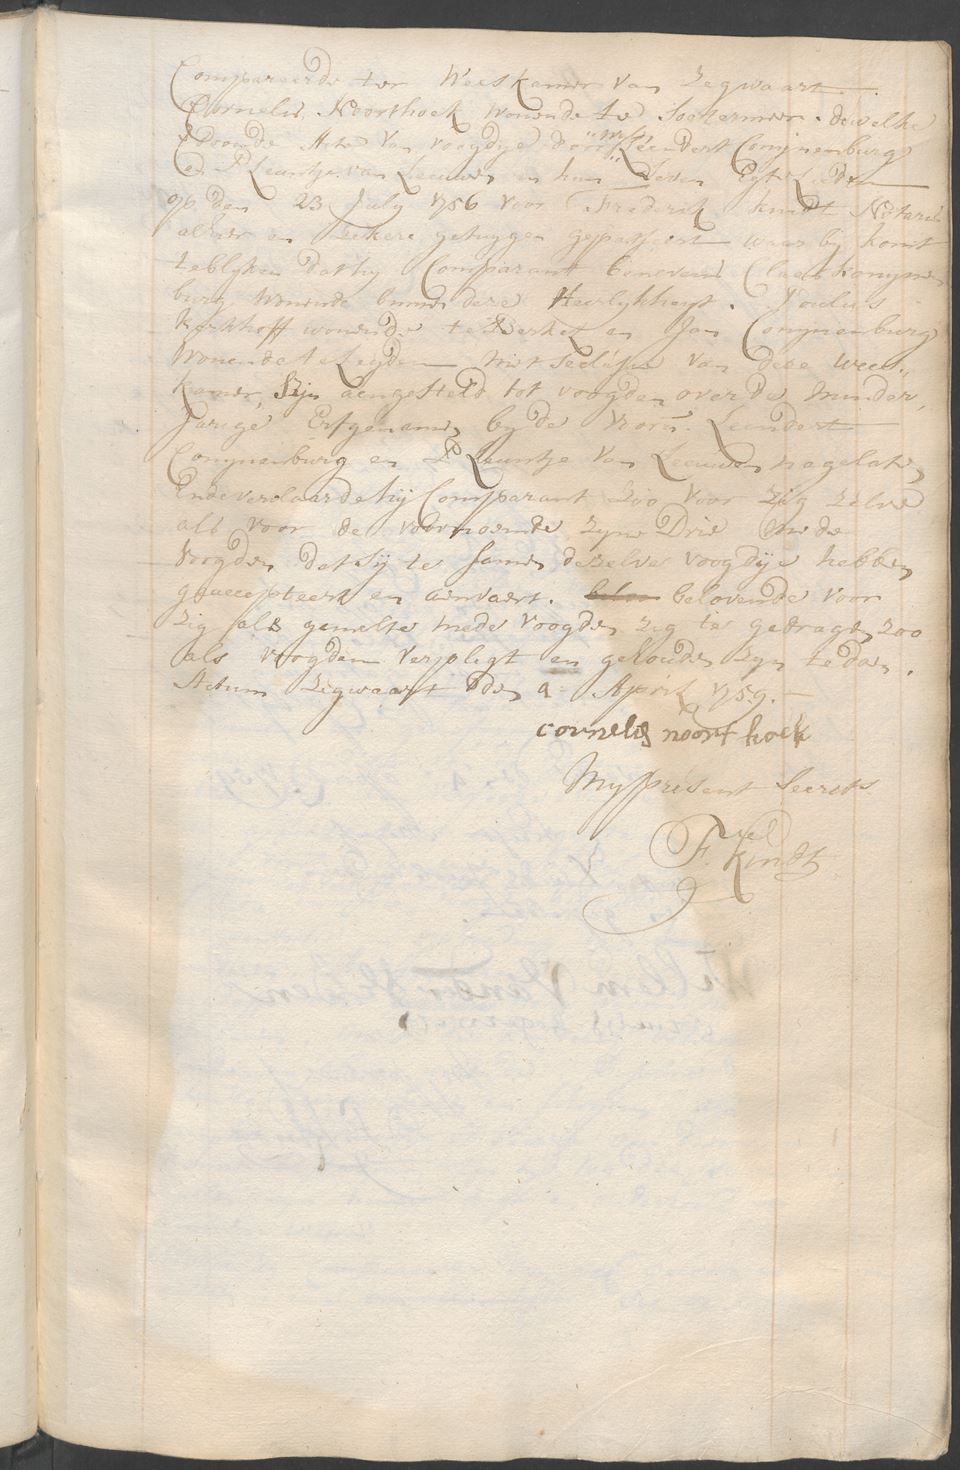 Compareerde ter Weeskamer van Zegwaart
Cornelis Noorthoek wonende te Soetermeer. dewelke
Exhoonde Acte van voogdye door Leendert Conijnenburg
en Leuntje van Leeuwen in hun Leven Egte Lieden
op den 23 July 1756 voor Frederik Kindt Notaris
alhier en seekere getuygen gepasseert waar by komt
te blyken dat hy Comparant benevens Claas Konijnen
burg wonende binnen deze Heerlykheyt.
Kerkhoff wonende te Berkel en Jan Conynenburg
wonende te Leyden met seclusie van deze wees
kamer, Zijn aengesteld tot voogden over de minder
Jarige Erfgenamen by de voorn. Leendert
Conynenburg en Leuntje van Leeuwen nagelaten
Ende verclaarde hij Comparant zoo voor zig zelve
als voor de voornoemde zyne Drie mede
Voogden dat sij te samen deselve voogdije hebben
geaccepteert en aenvaert. belovende voor
zig als gemelte mede voogden zig te gedragen zoo
als voogden verpligt en gehouden zyn te doen.
Actum Zegwaart den 9 April 1759.
cornelis noort hoek
My present Secrets
F. Kindt